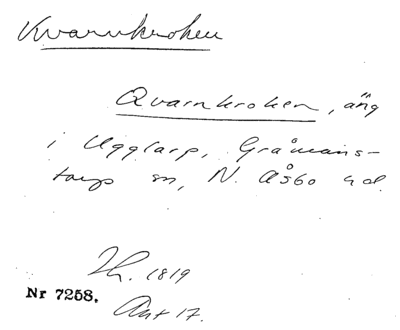 Kvarnkroken
Qvarnkroken, äng
i Ugglarp, Gråmans-
torps sn, N. Åsbo hd.
1819
Nr 7258.
Akt 17.